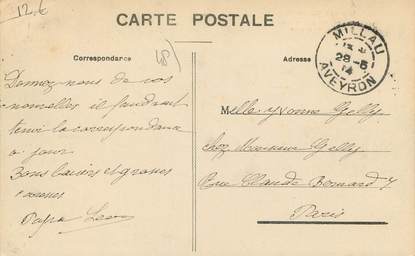 12 €
CARTE POSTALE
Correspondance
(8)
Adresse
MILLAU
28-5
14
AVEYRON
Donnez nous de vos
nouvelles il faudrait
tenir la correspondance
a jour
Bons baisers et grosses
Papa Leon
Melle Yvonne Gelly
chez Monsieur Gelly
Rue Claude Bernard 7
Paris